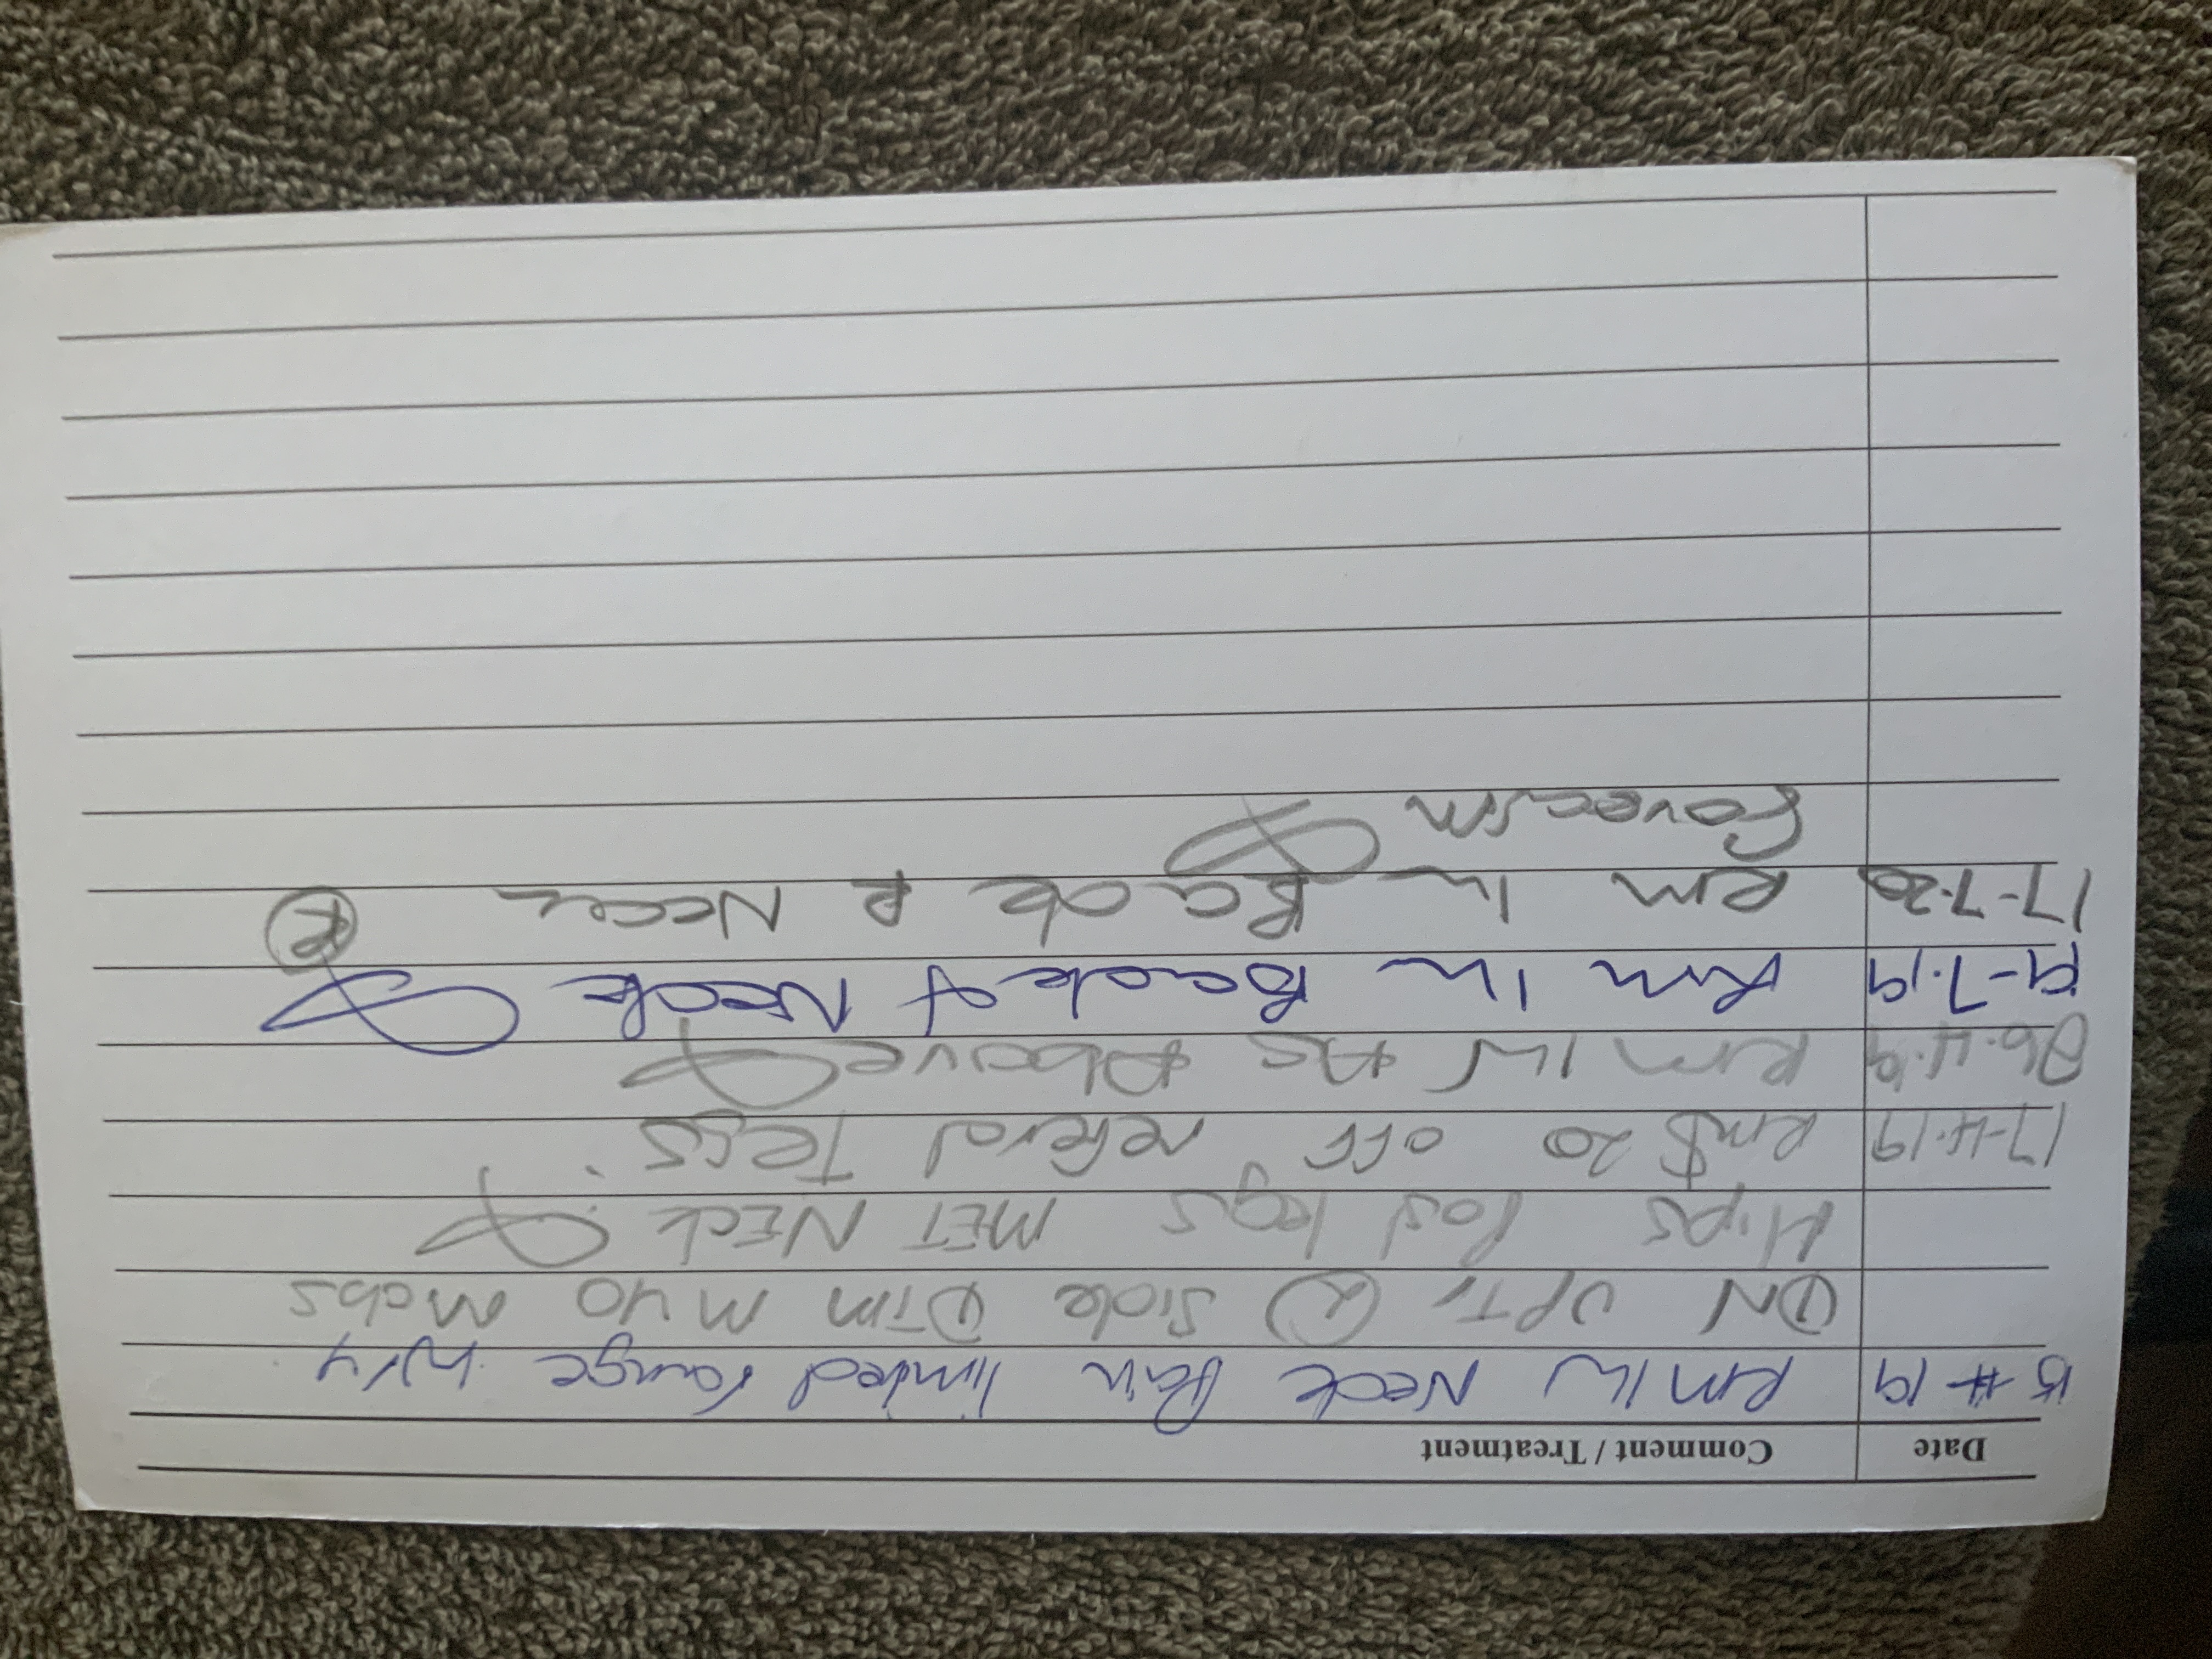 Date Comment / Treatment
15 4 19 RM 1hr Neck Pain limited range
DN UPTr (L) side DTM MYO Mobs
Hips Pos legs MET NECK
17-4.19 RM $20 off referal Tegs.
26.4.19 RM 1hr As Above
19-7.19 RM 1hr Back of Neck
17-7.20 RM 1hr Back & Neck (R)
Forearm